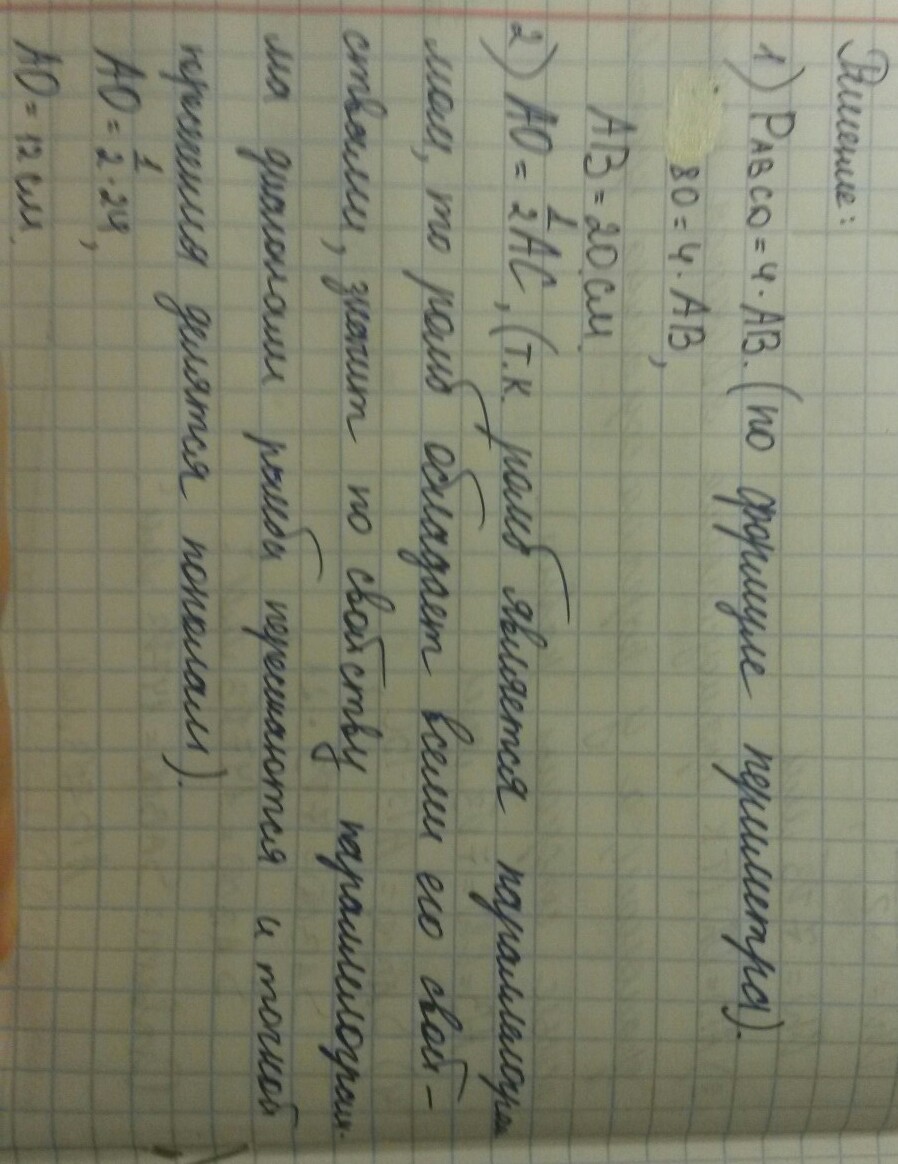 Решение:
1) PABCD = 4 · AB. (по формуле периметра).
80 = 4 · AB,
AB = 20 см.
2) AO = 1/2 AC, (т.к. ромб является параллелограм
мом, то ромб обладает всеми его свой-
ствами, значит по свойству параллелограм-
ма диагонали ромба пересекаются и точкой
пересечения делятся пополам).
AO = 1/2 · 24,
AO = 12 см.